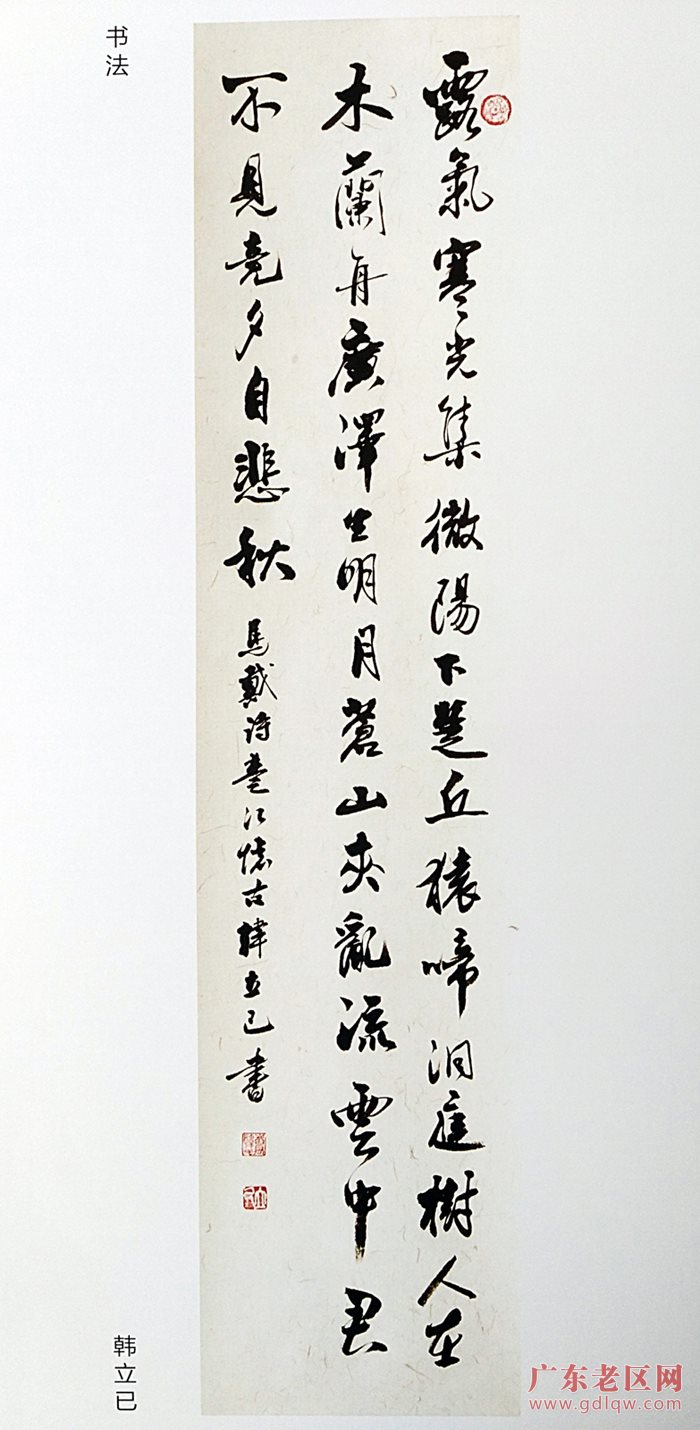 书法
露氣寒光集微陽下楚丘猿啼洞庭樹人在
木蘭舟廣澤生明月蒼山夾亂流雲中君
不見竟夕自悲秋 馬戴詩楚江懷古韓立已書
韩立已
广东老区网
www.gdlqw.com